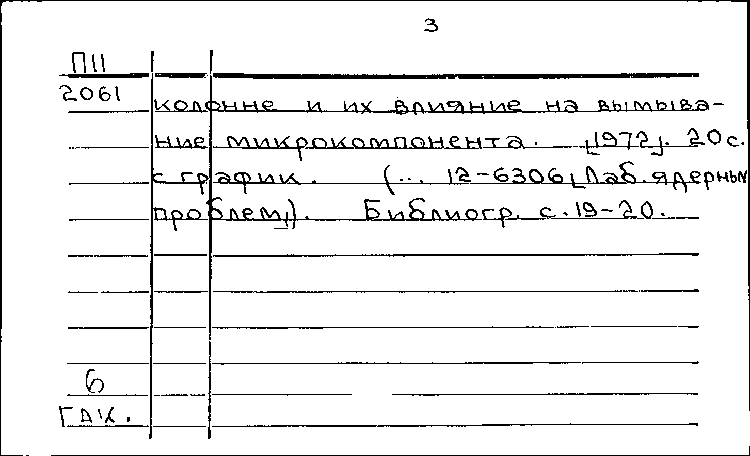 3
П11
2061
колонне и их влияние на вымыва-
ние микрокомпонента. [1972]. 20 с.
с график. (... 12-6306 [Лаб. ядерных
проблем]). Библиогр. с. 19-20.
6
ГДК.